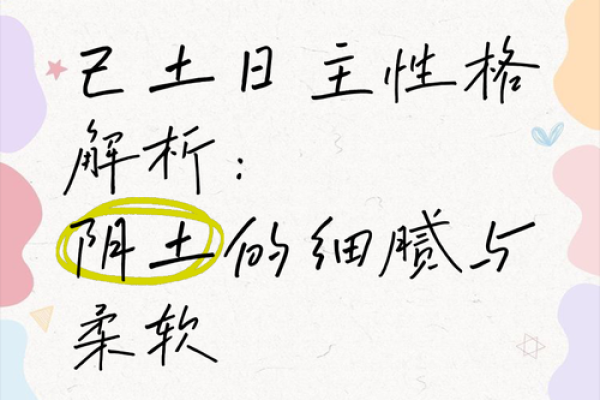 己土日主性格
解析：
阴土的细腻与
柔软